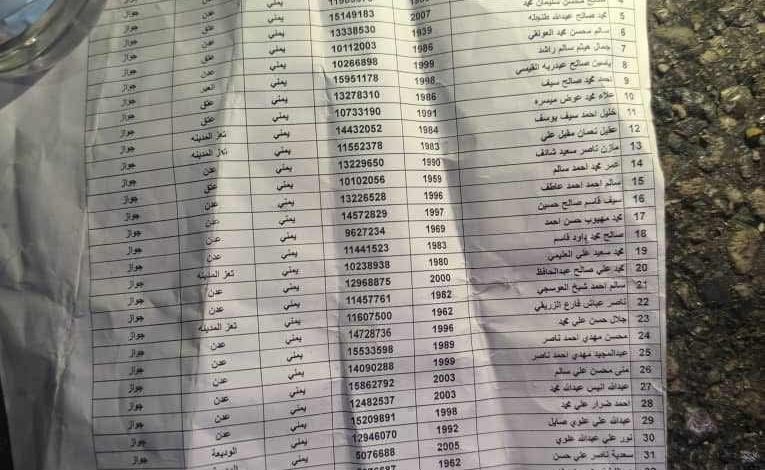 4 محسن سليمان محمد
5 محمد صالح عبدالله طنجله 2007 15149183 يمني عدن جواز
6 سالم محسن محمد العولقي 1939 13338530 يمني عتق جواز
7 جمال هيثم سالم راشد 1986 10112003 يمني عدن جواز
8 ياسين صالح عبدربه القيسي 1999 10266898 يمني عدن جواز
9 احمد محمد صالح سيف 1998 15951178 يمني العبر جواز
10 علاء محمد عوض ميسره 1986 13278310 يمني عتق جواز
11 خليل احمد سيف يوسف 1991 10733190 يمني عتق جواز
12 عقيل نعمان مقبل علي 1984 14432052 يمني تعز المدينه جواز
13 مازن ناصر سعيد شائف 1983 11552378 يمني تعز المدينه جواز
14 عمر محمد احمد سالم 1990 13229650 يمني عدن جواز
15 سالم احمد احمد عاطف 1959 10102056 يمني عتق جواز
16 سيف قاسم صالح حسين 1996 13226528 يمني عدن جواز
17 محمد مهيوب حسن احمد 1997 14572829 يمني عدن جواز
18 صالح محمد داود قاسم 1969 9627234 يمني عدن جواز
19 محمد سعيد علي العليمي 1983 11441523 يمني عدن جواز
20 محمد علي صالح عبدالحافظ 1980 10238938 يمني تعز المدينه جواز
21 سالم احمد شيخ العوسجي 2000 12968875 يمني عدن جواز
22 ناصر عياش فارع الزريقي 1982 11457761 يمني عدن جواز
23 جلال حسن علي محمد 1962 11607500 يمني تعز المدينه جواز
24 محسن مهدي احمد ناصر 1996 14728736 يمني عدن جواز
25 عبدالمجيد مهدي احمد ناصر 1989 15533598 يمني عدن جواز
26 منى محسن علي سالم 1999 14090288 يمني عدن جواز
27 عبدالله اليس عبدالله محمد 2003 15862792 يمني عدن جواز
28 احمد ضرار علي محمد 2003 12482537 يمني عدن جواز
29 عبدالله علي علوي صايل 1998 15209891 يمني عدن جواز
30 نور علي عبدالله علوي 1992 12946070 يمني عدن جواز
31 سعدية ناصر علي حسن 2005 5076688 يمني الوديعة جواز
1962